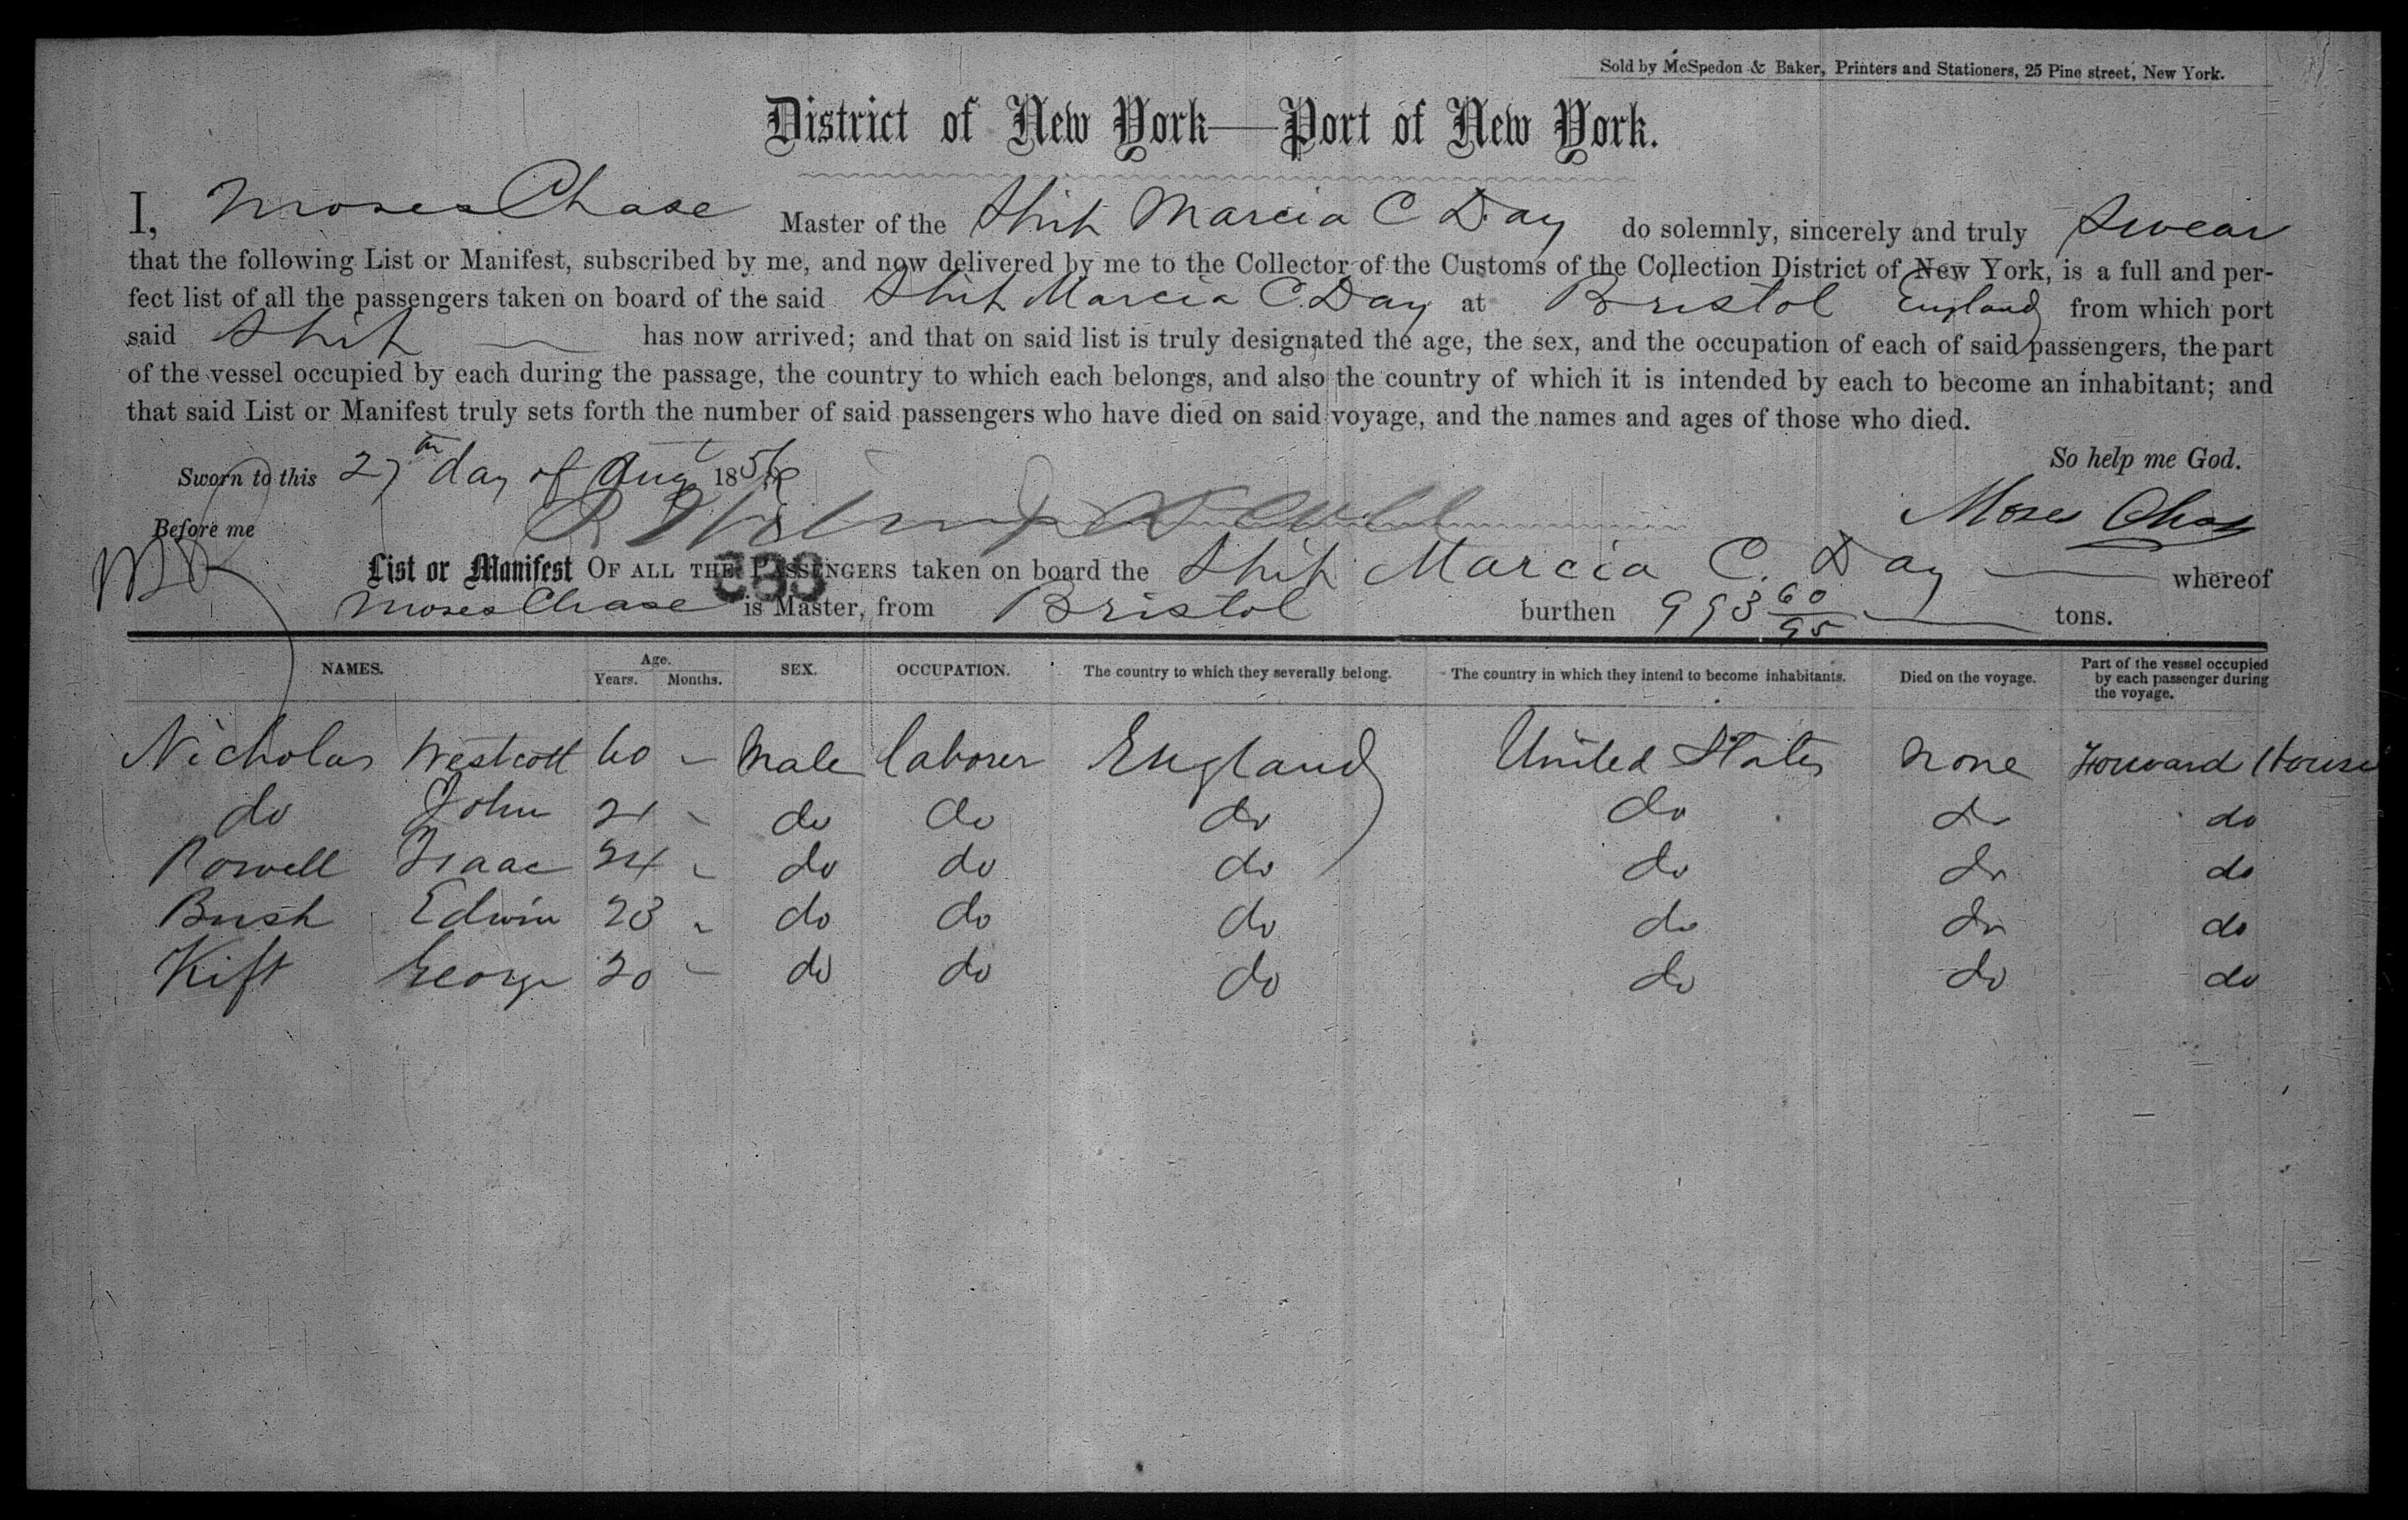 Sold by McSpedon & Baker, Printers and Stationers, 25 Pine street, New York.
District of New York—Port of New York.
I, Moses Chase Master of the Ship Marcia C Day do solemnly, sincerely and truly Swear
that the following List or Manifest, subscribed by me, and now delivered by me to the Collector of the Customs of the Collection District of New York, is a full and per-
fect list of all the passengers taken on board of the said Ship Marcia C. Day at Bristol England from which port
said Ship has now arrived; and that on said list is truly designated the age, the sex, and the occupation of each of said passengers, the part
of the vessel occupied by each during the passage, the country to which each belongs, and also the country of which it is intended by each to become an inhabitant; and
that said List or Manifest truly sets forth the number of said passengers who have died on said voyage, and the names and ages of those who died.
So help me God.
Sworn to this 27th day of Augt 1856
Moses Chase
Before me
List or Manifest OF ALL THE PASSENGERS taken on board the Ship Marcia C. Day whereof
Moses Chase is Master, from Bristol burthen 993 60/95 tons.
NAMES. Age. Years. Months. SEX. OCCUPATION. The country to which they severally belong. The country in which they intend to become inhabitants. Died on the voyage. Part of the vessel occupied by each passenger during the voyage.
Nicholas Westcott 60 – Male laborer England United States None Forward House
do John 21 – do do do do do do
Rowell Isaac 24 – do do do do do do
Bush Edwin 23 – do do do do do do
Kift George 20 – do do do do do do